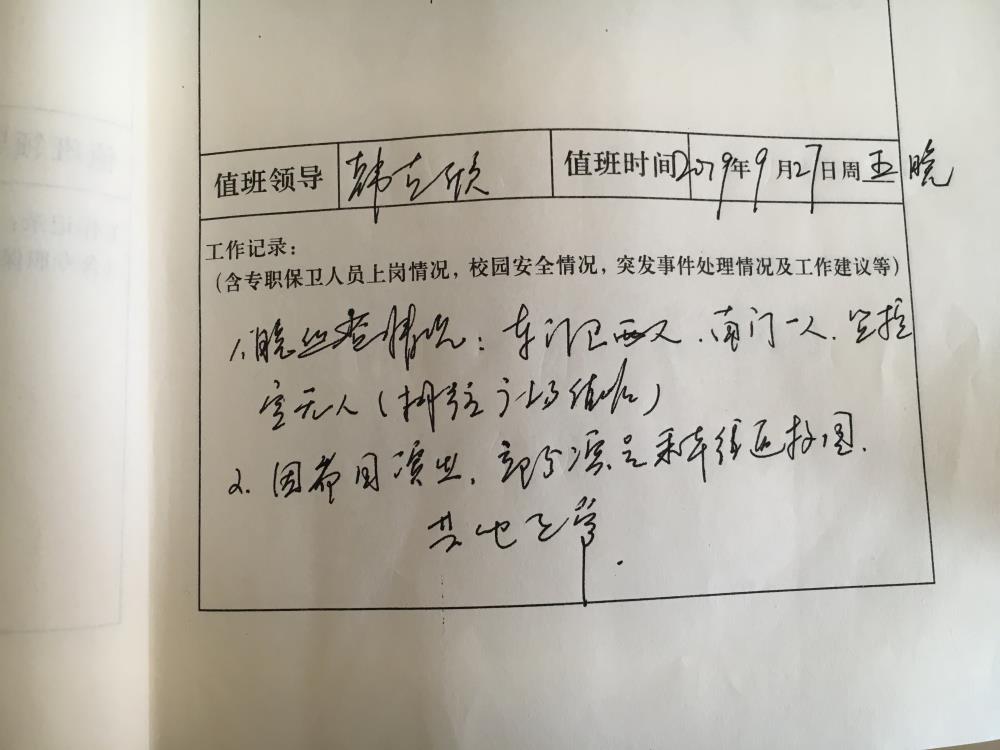 值班领导 韩克欣 值班时间 2019年9月27日周五晚
工作记录：
（含专职保卫人员上岗情况，校园安全情况，突发事件处理情况及工作建议等）
1.晚 查情况：东门卫两人、南门一人、监控
室无人（ 值班）
2.因 国演出，部分演员乘车 返校园.
其他正常.